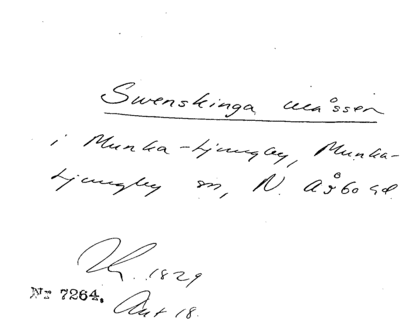 Swenskinga måssen
i Munka-Ljungby, Munka-
Ljungby sn, N. Åsbo hd.
1829
No 7264. Ant 18.